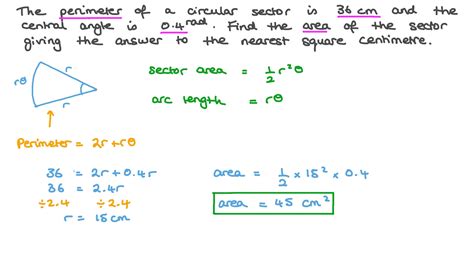 The perimeter of a circular sector is 36 cm and the
central angle is 0.4 rad. Find the area of the sector
giving the answer to the nearest square centimetre.
r
rθ
r
sector area = 1/2 r²θ
arc length = rθ
Perimeter = 2r+rθ
36 = 2r + 0.4r
36 = 2.4r
÷2.4 ÷2.4
r = 15 cm
area = 1/2 × 15² × 0.4
area = 45 cm²